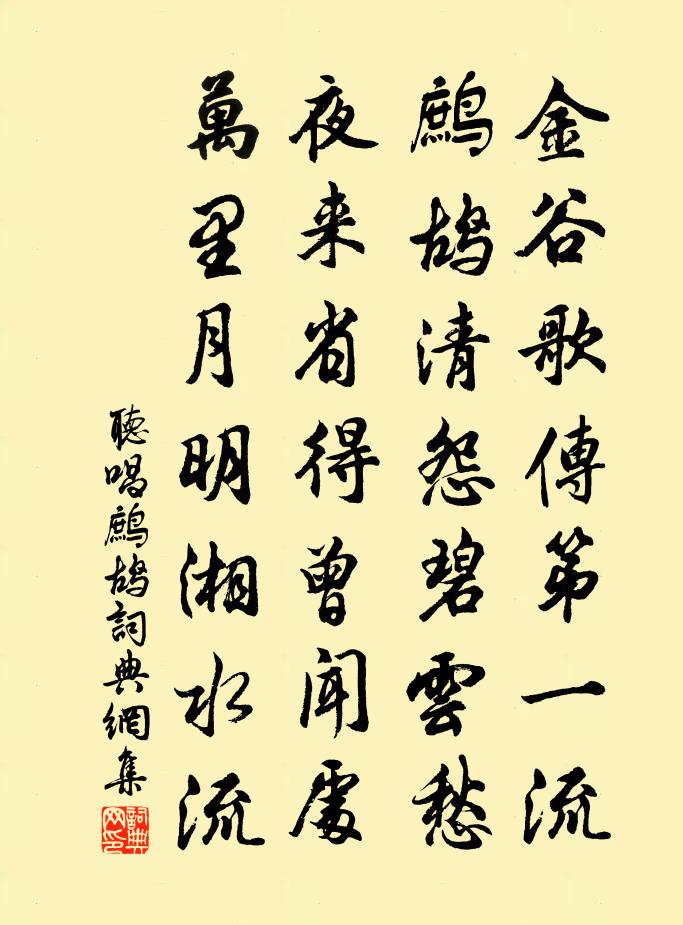 金谷歌傳第一流
鷓鴣清怨碧雲愁
夜来省得曾聞處
萬里月明湘水流
聽唱鷓鴣詞典網集
詞典网印